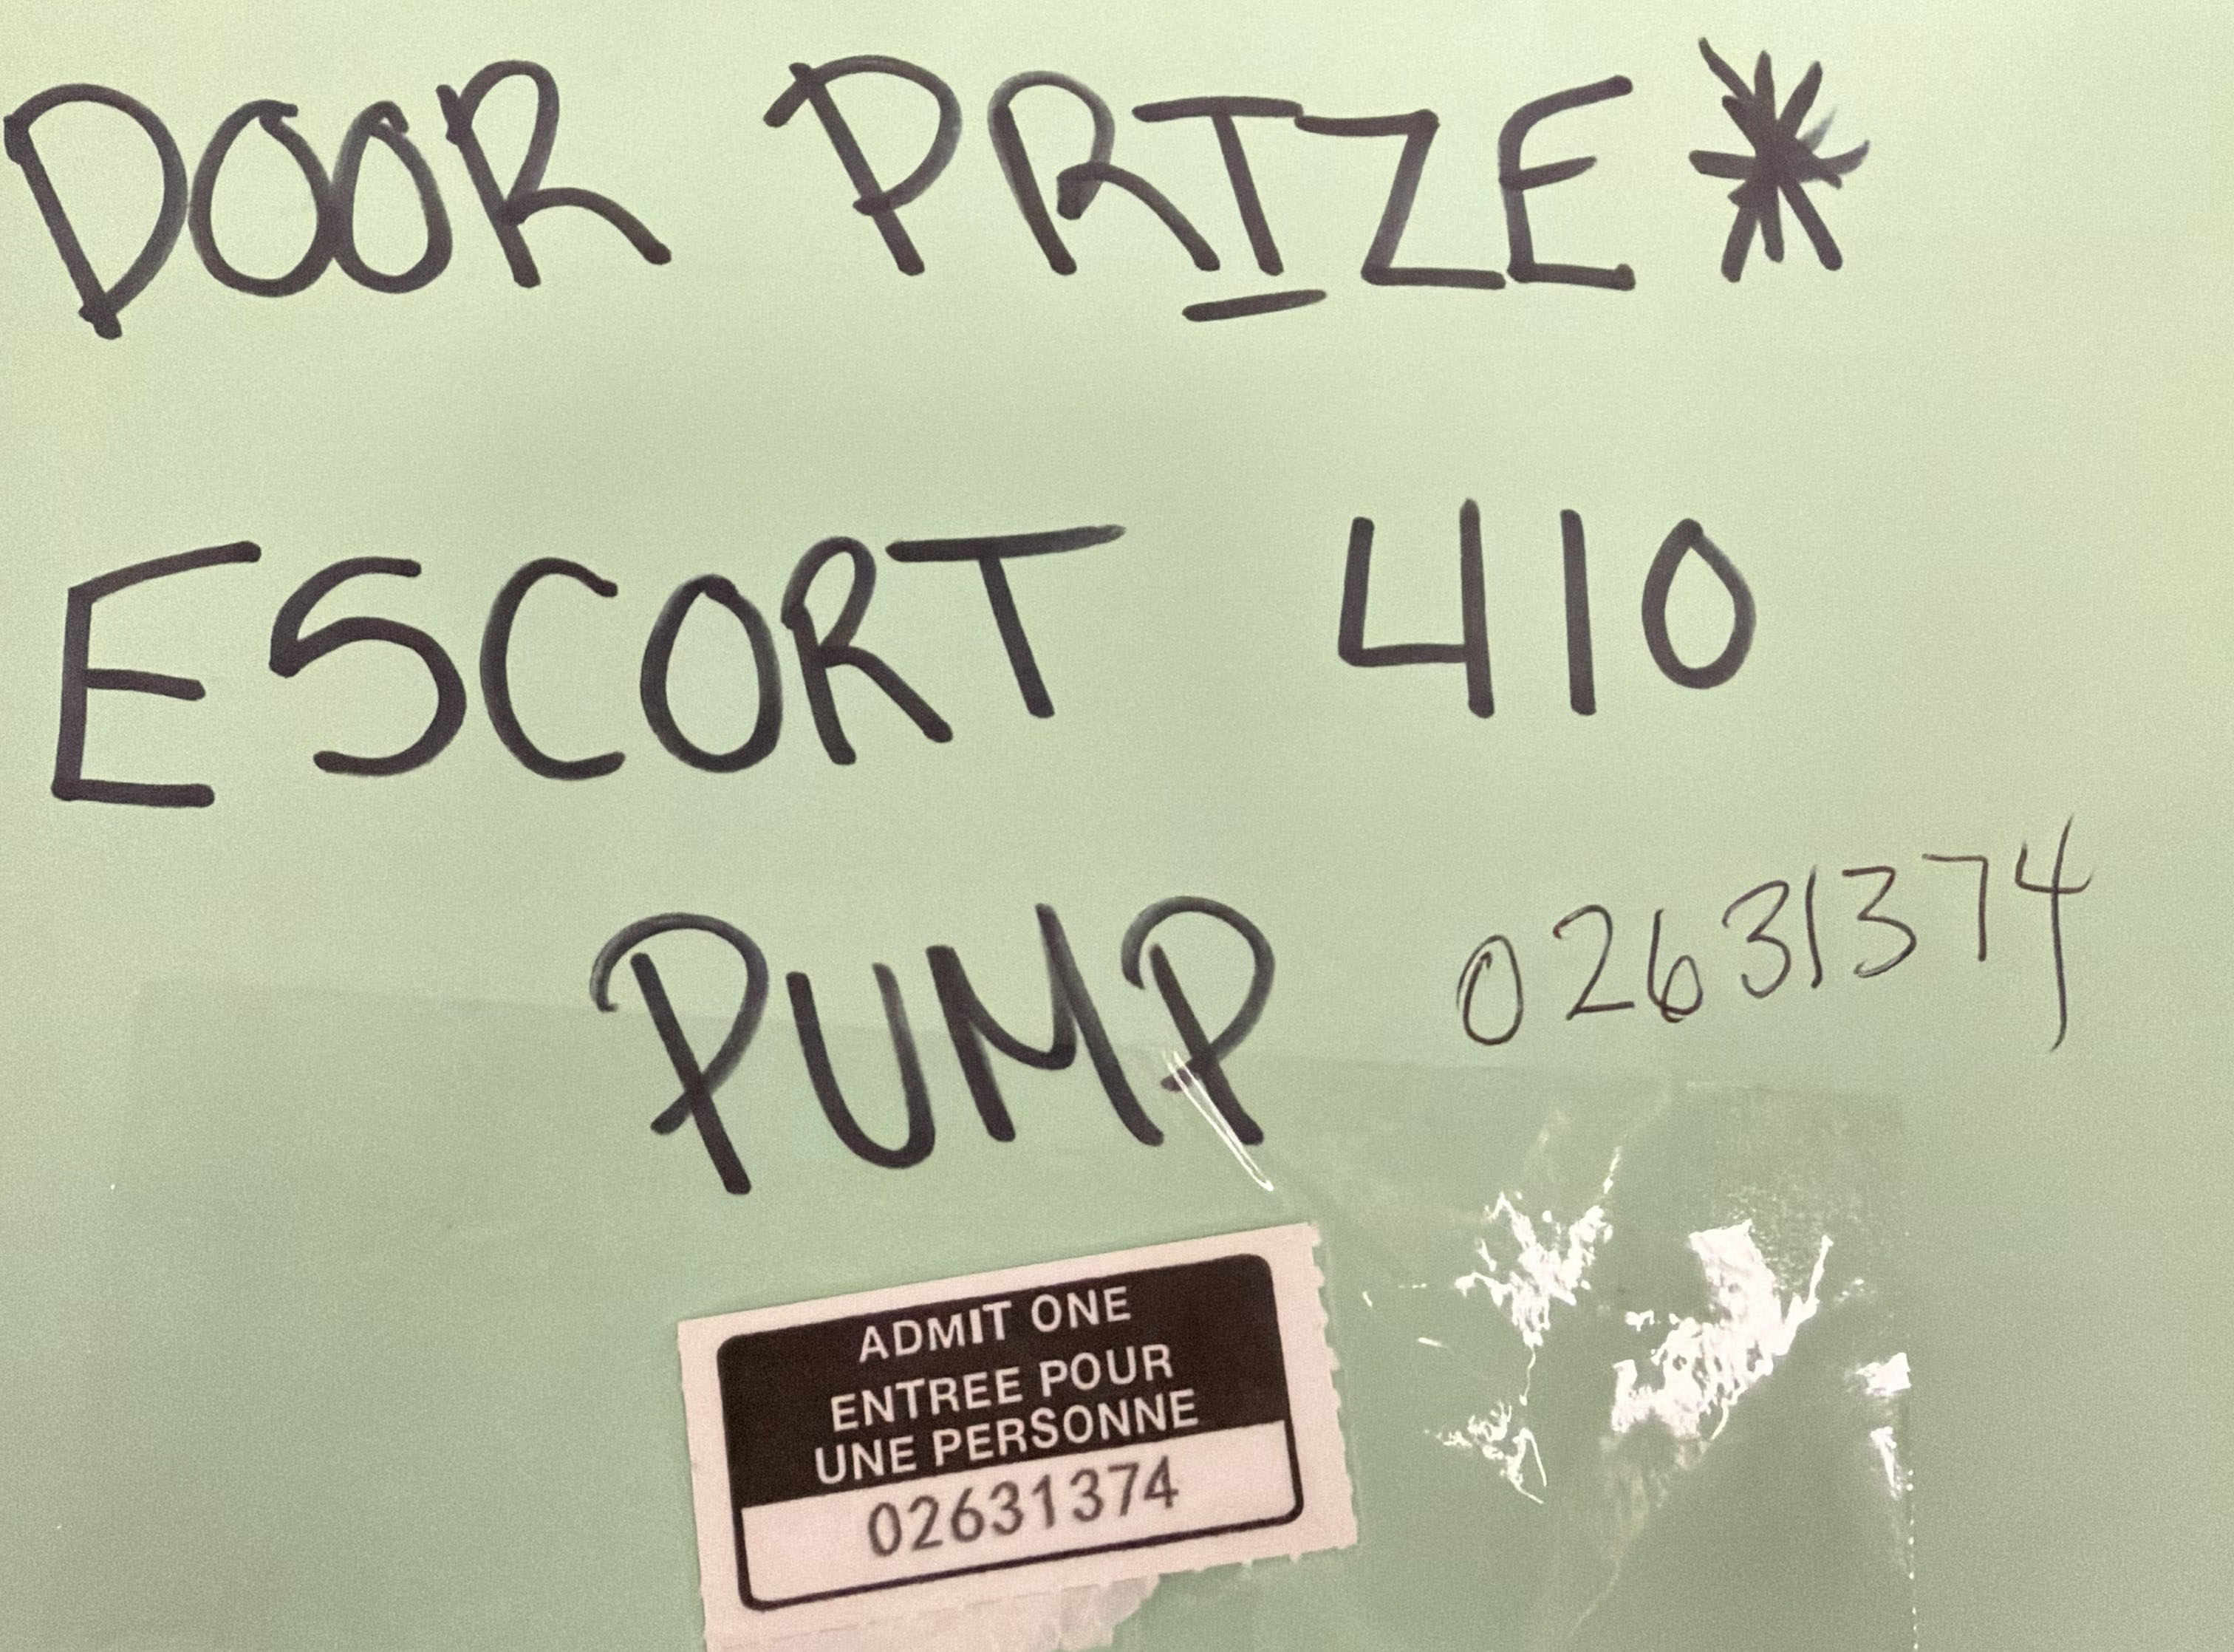 DOOR PRIZE*
ESCORT 410
PUMP 02631374
ADMIT ONE
ENTREE POUR
UNE PERSONNE
02631374